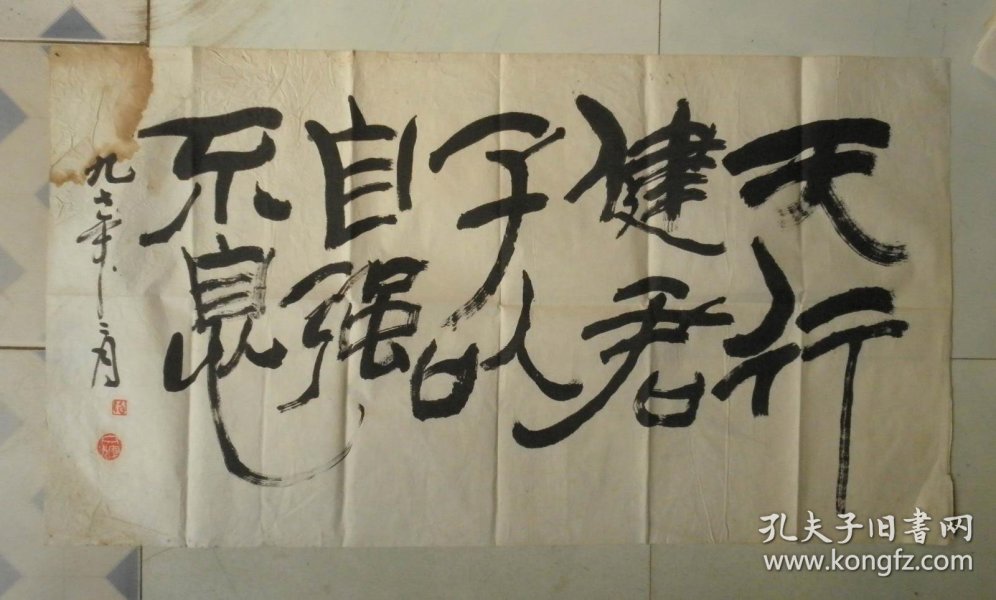 天行
健君
子以
自强
不息
九七年
孔夫子旧书网
www.kongfz.com